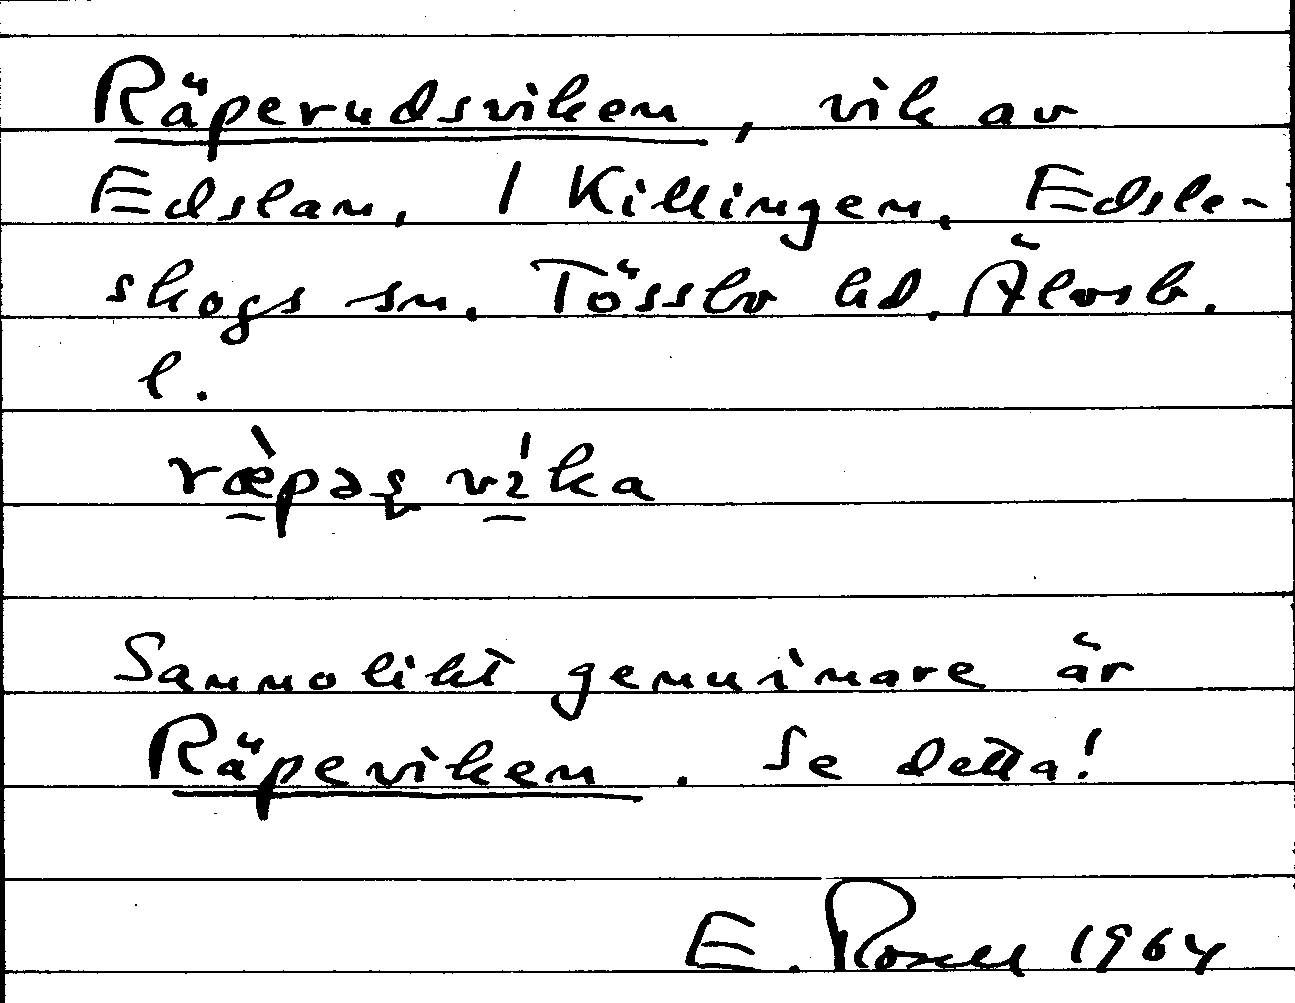 Räperudsviken, vik av
Edslan, I Killingen, Edsle-
skogs sn. Tössbo hd. Älvsb.
l.
ræ̀pəş víka
Sannolikt genuinare är
Räpeviken. Se detta!
E. Rosell 1964